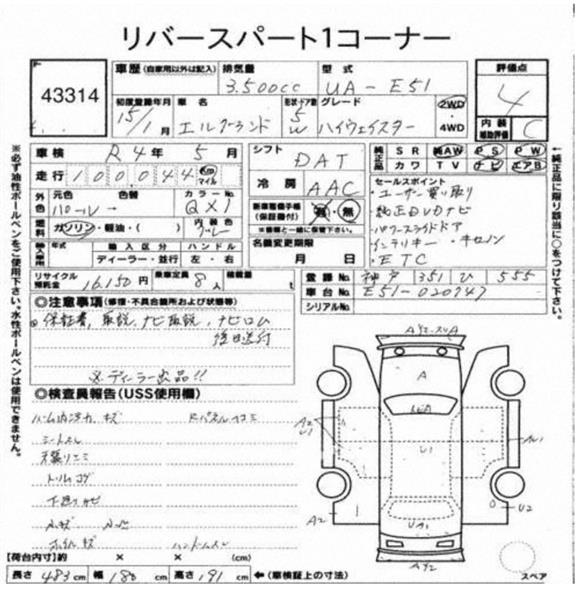 リバースパート1コーナー
43314
車歴 (自家用以外は記入) 排気量 型式
3.500cc UA-E51
初度登録年月 車名 形状・ドア数 グレード
15/1月 エルグランド 5W ハイウェイスター 2WD・4WD
評価点
4
内装補助評価 C
車検 R4年5月
走行 100044 Km マイル
シフト DAT
冷房 AAC
純正品 SR 純AW PS PW
カワ TV ナビ エアB
外色 元色 色替 カラーNo. QX1
パール
燃料 ガソリン・軽油・( ) 内装色 グレー
輸入車 年式 輸入区分 ハンドル
ディーラー・並行 左・右
新車整備手帳(保証書付) 有・無
↑車検証と一緒に保管して下さい。
名義変更期限
月 日
セールスポイント
・ユーザー買い取り
・純正DVDナビ
・パワースライドドア
・インテリキー・キセノン
・ETC
リサイクル預託金 16.150円 乗車定員 8人 積載量 t
登録No. 神戸 351 ひ 555
車台No. E51-020747
シリアルNo.
◎注意事項(修復・不具合箇所および状態等)
保証書、取説、ナビ取説、ナビロム
後日送付
※ディーラー出品!!
◎検査員報告(USS使用欄)
シートスレ
天張りシミ
下廻りサビ
A
U1
A2
U2
【荷台内寸】約 × × (cm)
長さ 483cm 幅 180cm 高さ 191cm ←(車検証上の寸法)
スペア
※必ず油性ボールペンをご使用下さい。水性ボールペンは使用できません。
↑純正品に限り該当に○をつけて下さい。